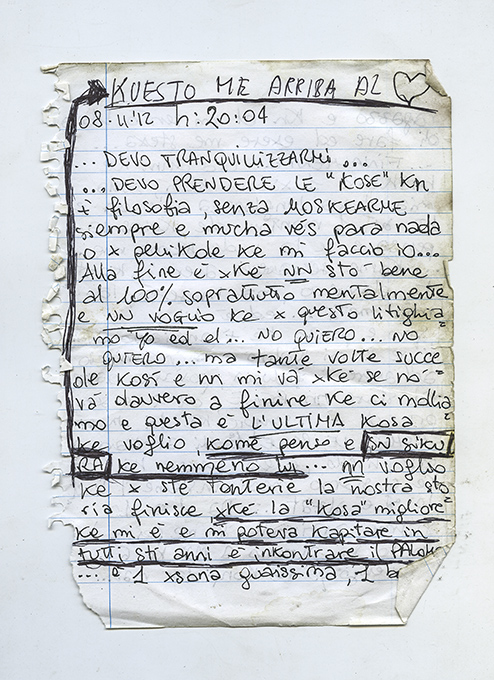 KUESTO ME ARRIBA AL
08·11'12 h:20:04
.. DEVO TRANQUILLIZZARMI ...
... DEVO PRENDERE LE "KOSE" KN
+ filosofia, senza MOSKEARME
siempre e mucha vés para nada
o x pelikole ke mi faccio io...
Alla fine è xKé NN stò bene
al 100% soprattutto mentalmente
e NN VOGLIO Ke x questo litighia=
mo yo ed el... NO QUIERO... NO
QUIERO... ma tante volte succe
de kosí e nn mi vá xké se nó
vá davvero a finire ke ci mollia=
mo e questa è L'ULTIMA KOSA
ke voglio, kome penso e SN SIKU
RA ke nemmeno lui... nn voglio
ke x ste tonterie la nostra sto
ria finisce xKé la "Kosa" migliore
Ke mi è e mi poteva kapitare in
tutti sti anni è inkontrare il
....è 1 xsona guaissima, 1